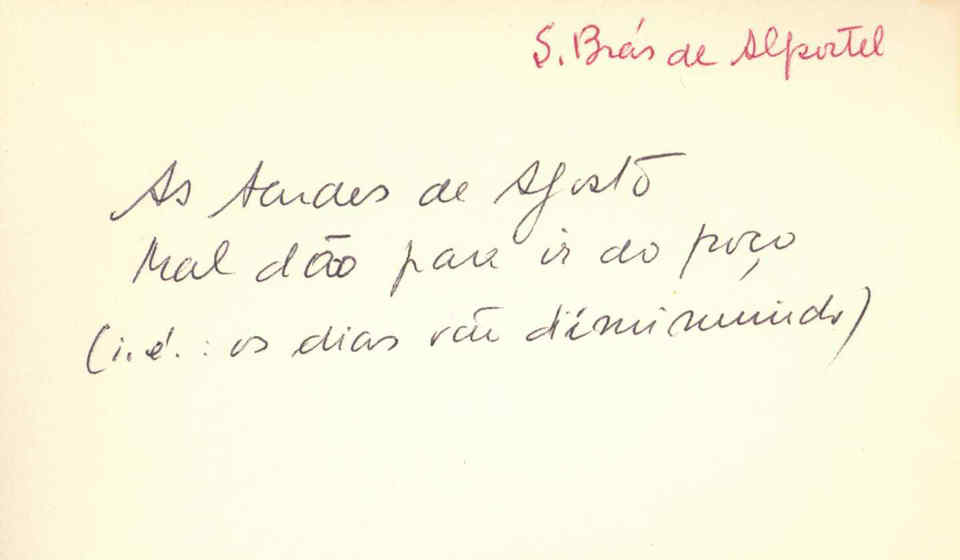 S. Brás de Alportel
As tardes de Agosto
Mal dão para ir ao poço
(i. é. : os dias vão diminuindo)